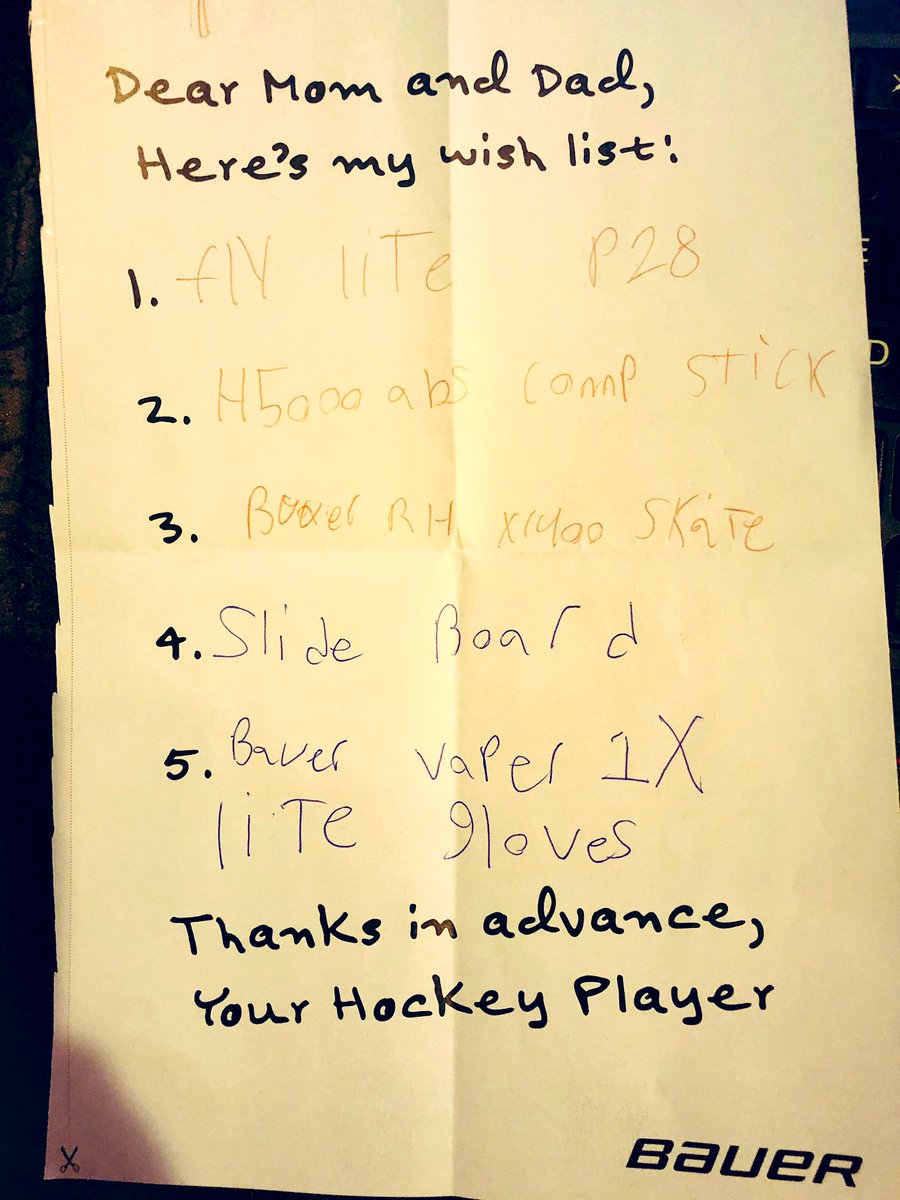 Dear Mom and Dad,
Here's my wish list:
1. fly liTe P28
2. H5000 abs Comp STiCK
3. Bauer RH x1400 SKaTe
4. Slide Board
5. Bauer vaper 1X
liTe gloves
Thanks in advance,
Your Hockey Player
BAUER